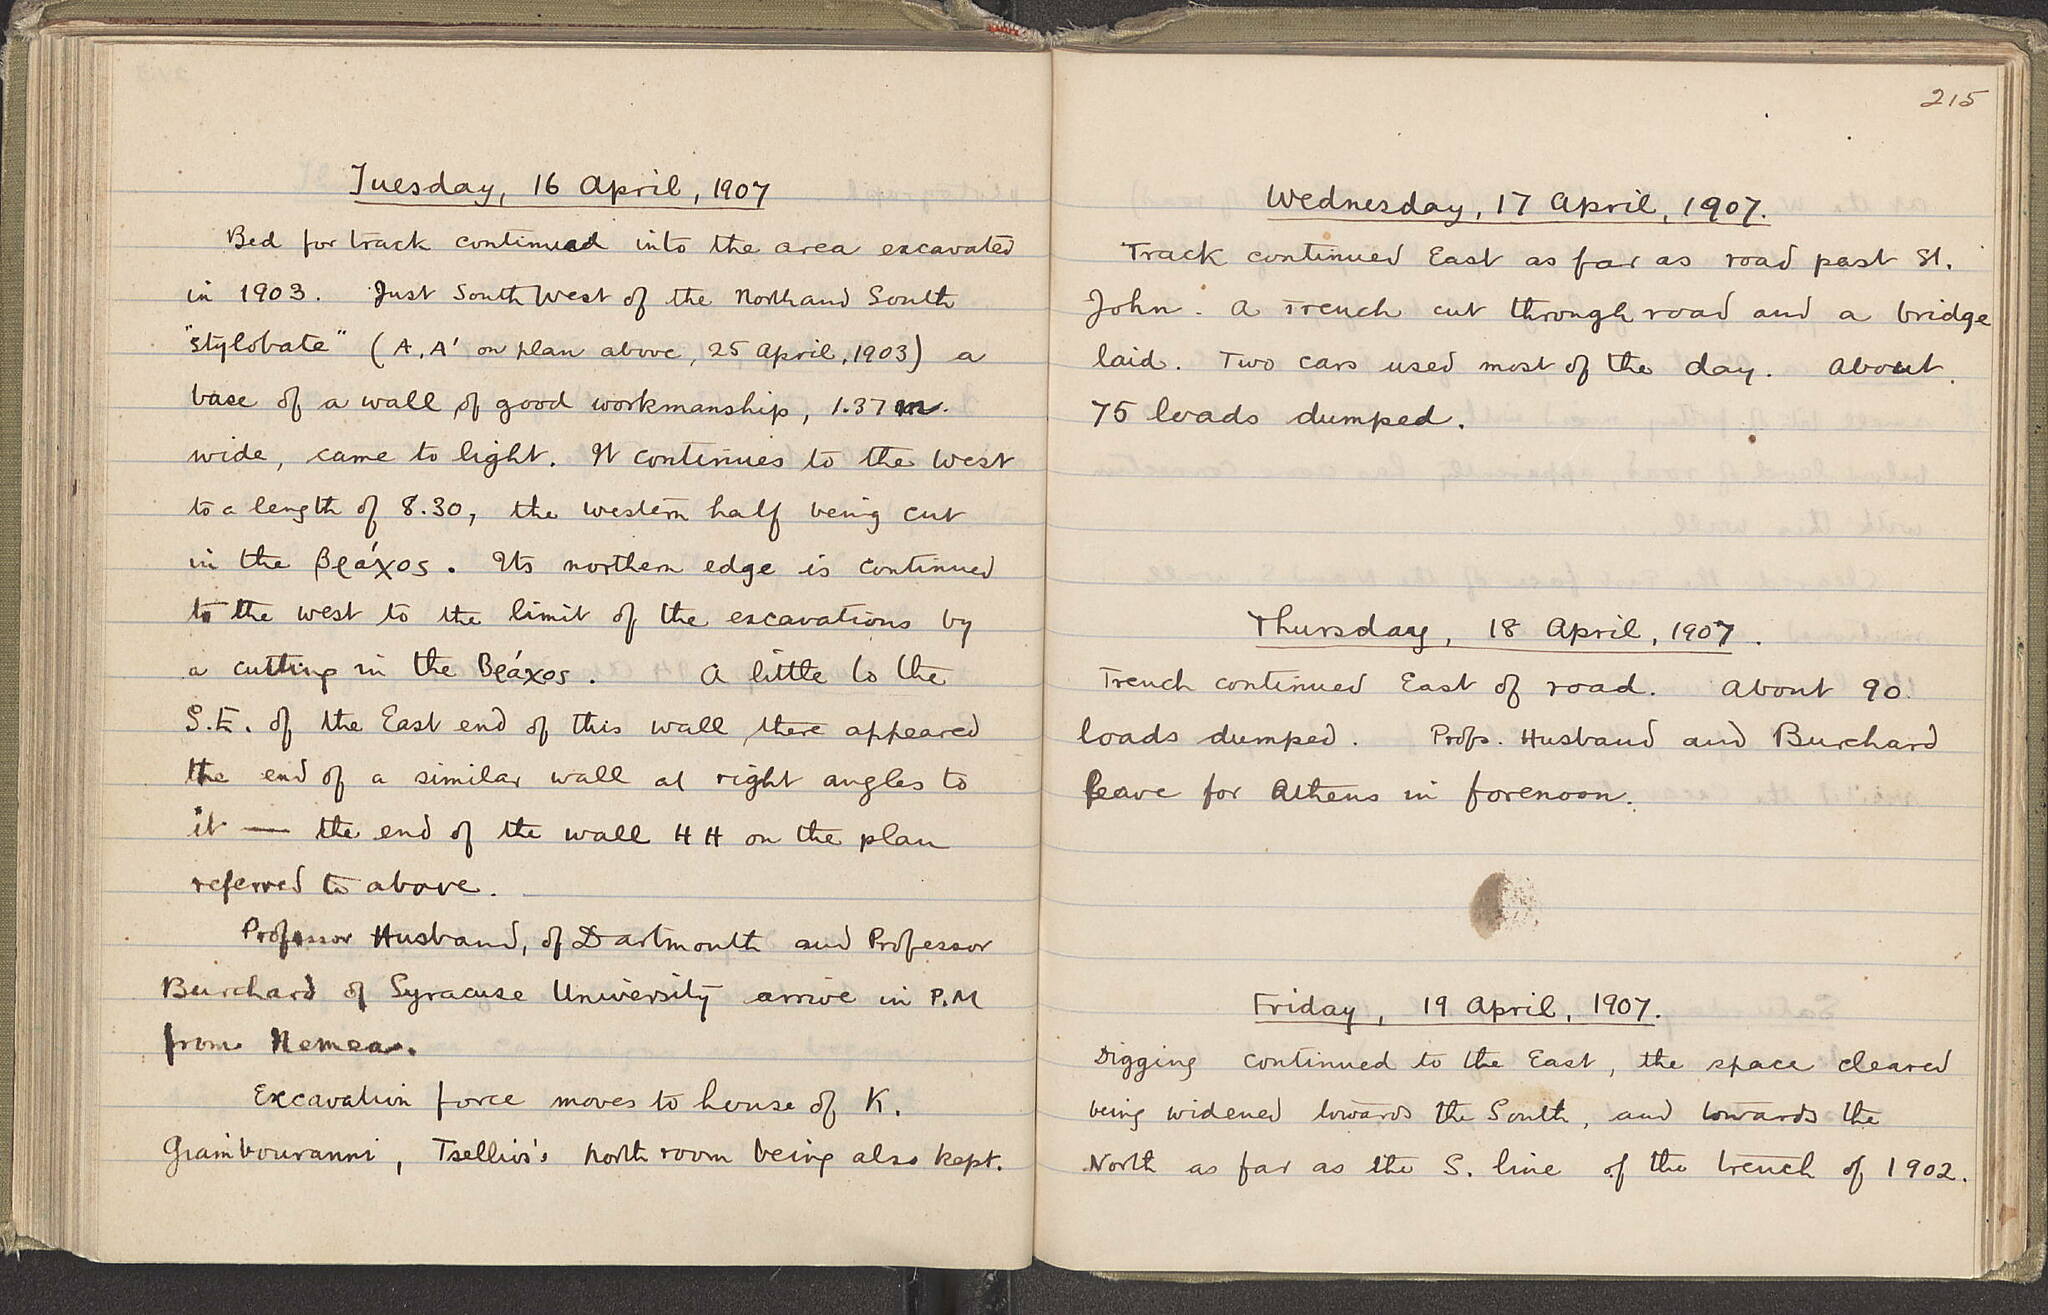 Tuesday, 16 April, 1907
Bed for track continued into the area excavated
in 1903. Just South West of the North and South
"stylobate" (A, A' on plan above, 25 April, 1903) a
base of a wall of good workmanship, 1.37 m.
wide, came to light. It continues to the west
to a length of 8.30, the western half being cut
in the βράχος. Its northern edge is continued
to the west to the limit of the excavations by
a cutting in the βράχος. A little to the
S.E. of the East end of this wall there appeared
the end of a similar wall at right angles to
it — the end of the wall H H on the plan
referred to above.
Professor Husband, of Dartmouth and Professor
Burchard of Syracuse University arrive in P.M
from Nemea.
Excavation force moves to house of K.
Giambouranni, Tsellios's north room being also kept.
215
Wednesday, 17 April, 1907.
Track continued East as far as road past St.
John. A trench cut through road and a bridge
laid. Two cars used most of the day. About
75 loads dumped.
Thursday, 18 April, 1907.
Trench continued East of road. About 90
loads dumped. Profs. Husband and Burchard
leave for Athens in forenoon.
Friday, 19 April, 1907.
Digging continued to the East, the space cleared
being widened towards the South, and towards the
North as far as the S. line of the trench of 1902.